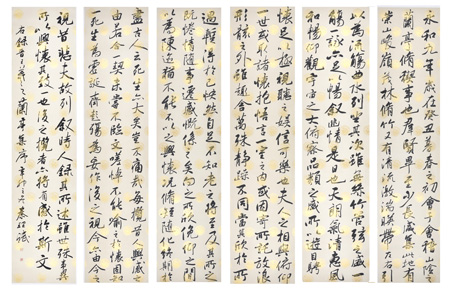 永和九年歲在癸丑暮春之初會于會稽山陰之
蘭亭脩禊事也群賢畢至少長咸集此地有
崇山峻領茂林脩竹又有清流激湍映帶左右引
以為流觴曲水列坐其次雖無絲竹管弦之盛一
觴一詠亦足以暢敘幽情是日也天朗氣清惠風
和暢仰觀宇宙之大俯察品類之盛所以遊目騁
懷足以極視聽之娛信可樂也夫人之相與俯仰
一世或取諸懷抱悟言一室之內或因寄所託放浪
形骸之外雖趣舍萬殊靜躁不同當其欣於所
遇暫得於己快然自足不知老之將至及其所之
既倦情隨事遷感慨係之矣向之所欣俛仰之間已
以為陳迹猶不能不以之興懷況脩短隨化終期於
盡古人云死生亦大矣豈不痛哉每攬昔人興感之
由若合一契未嘗不臨文嗟悼不能喻之於懷固知
一死生為虛誕齊彭殤為妄作後之視今亦由今之
視昔悲夫故列敘時人錄其所述雖世殊事異
所以興懷其致一也後之攬者亦將有感於斯文
右錄晉王羲之蘭亭集序